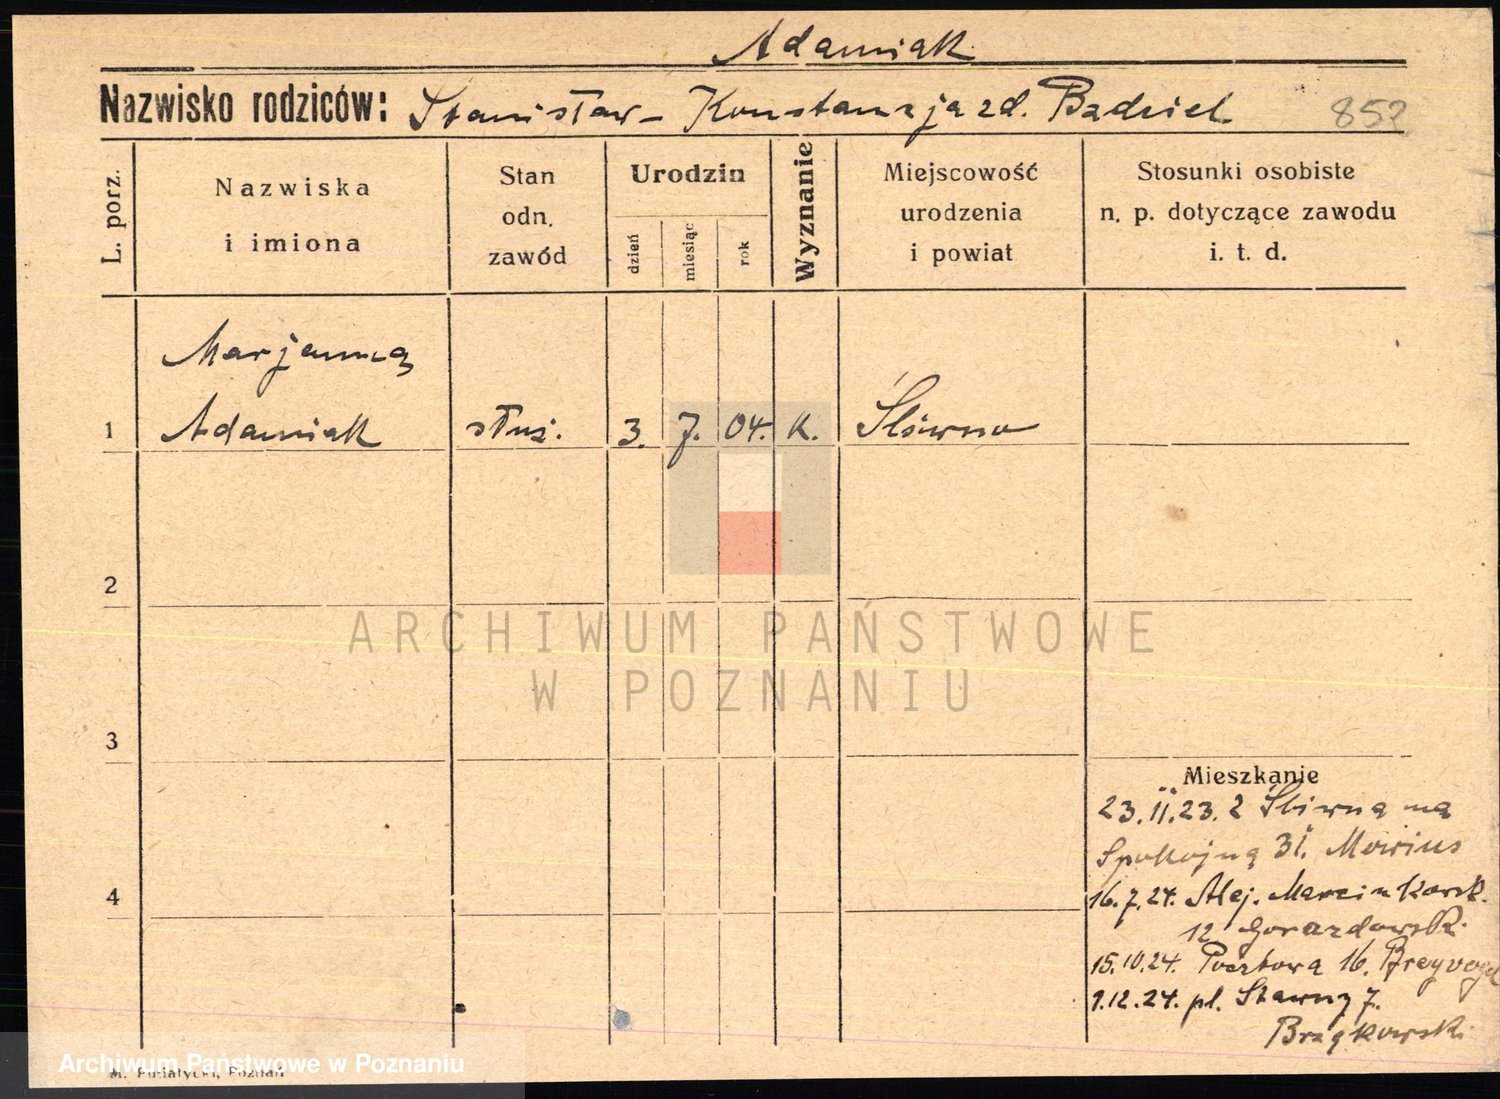 Adamiak
Nazwisko rodziców: Stanisław - Konstancja zd. Bądziel
L. porz.
Nazwiska
i imiona
Stan
odn.
zawód
Urodzin
dzień
miesiąc
rok
Wyznanie
Miejscowość
urodzenia
i powiat
Stosunki osobiste
n. p. dotyczące zawodu
i. t. d.
Marjanna
1 Adamiak służ. 3. 7. 04. K. Śliwno
2
ARCHIWUM PAŃSTWOWE
W POZNANIU
3
Mieszkanie
23. II. 23. z Śliwna na
Spokojną 31.
4
16.7.24. Alej. Marcinkowsk.
12 Gorazdowski
15.10.24. Pocztowa 16. Breyvogel
9.12.24. pl. Stawny 7.
Archiwum Państwowe w Poznaniu
Poznań